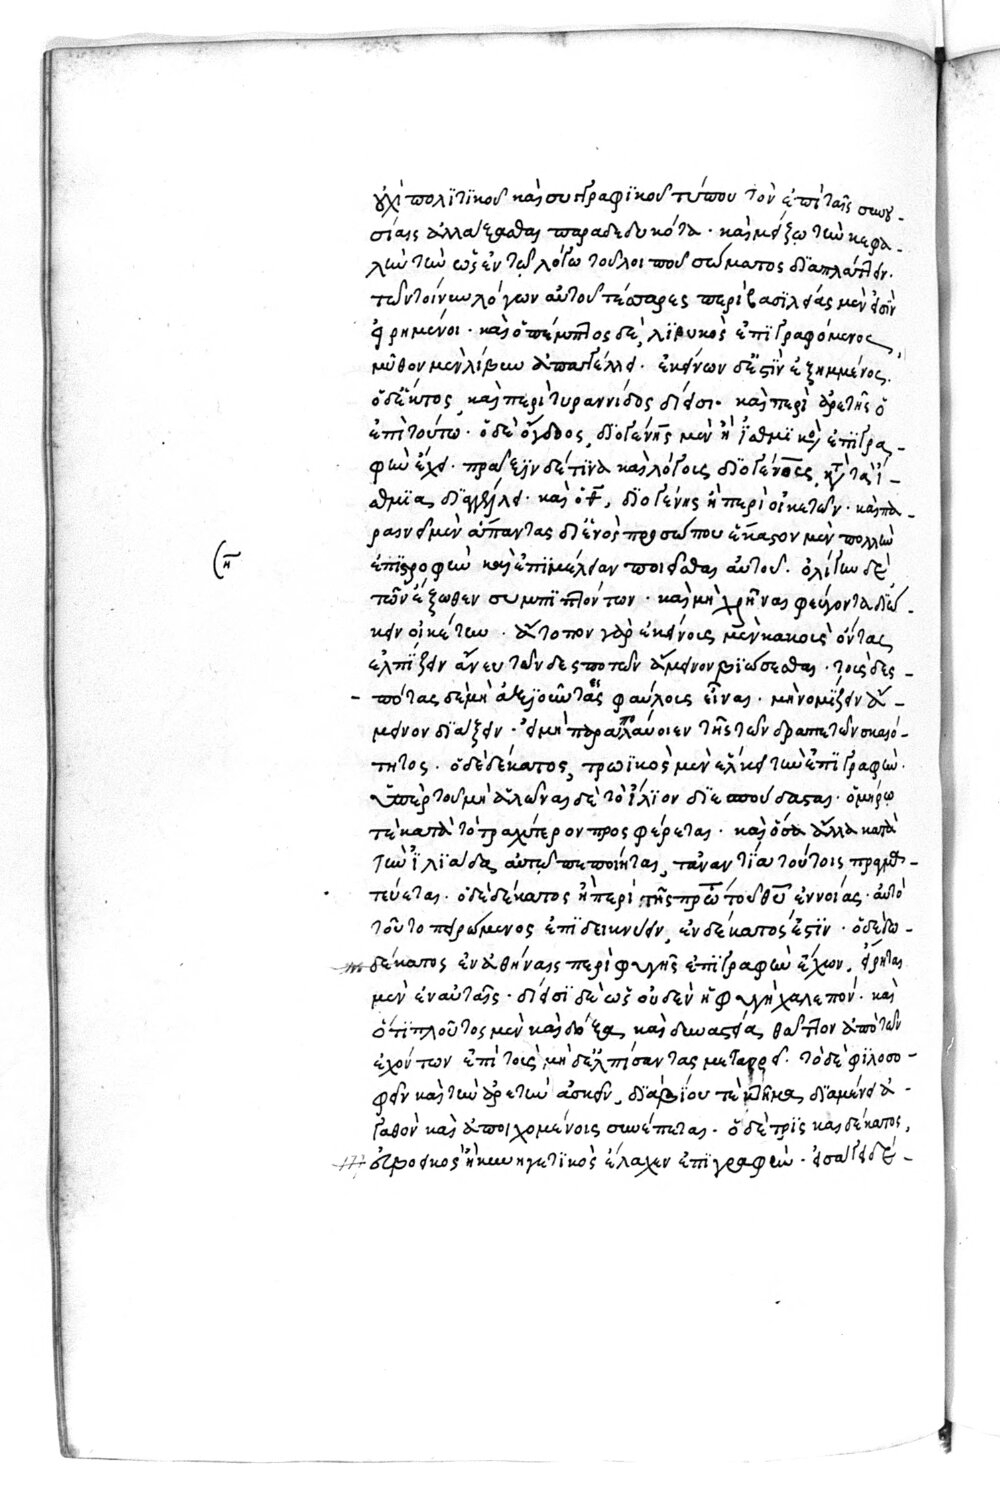 οὐχὶ πολϊτϊκοῦ καὶ συγγραφϊκοῦ τύπου τὸν ἐπὶ ταῖς συνου-
σίαις ἀλλάξασθαι παραδεδωκότα. καὶ μείζω τὴν κεφα-
λὴν τὴν ὡς ἐν τῷ λόγῳ τοῦ λοιποῦ σώματος δϊαπλάττειν.
τῶν τοίνυν λόγων αὐτοῦ τέσσαρες περὶ βασϊλείας μὲν εἰσὶν
εἰρημένοι. καὶ ὁ πέμπτος δὲ, λϊβυκὸς ἐπϊγραφόμενος,
μῦθον μὲν λίβυν ἀπαγγέλλει. ἐκείνων δὲ ἔστϊν ἐξημμένος.
ὁ δὲ ἕκτος, καὶ περὶ τυραννίδος δίεισι. καὶ περὶ ἀρετῆς ὁ
ἐπὶ τούτω. ὁ δὲ ὄγδοος, δϊογένης μὲν ἢ ἰσθμϊκὸς ἐπϊγρα-
φὴν ἔχει. πράξεϊν δέ τινα καὶ λόγοις δϊογένους, κατὰ τὰ ἴ-
σθμϊα, δϊαγγέλλει. καὶ ὁ θ, δϊογένης ἢ περὶ οἰκετῶν. καὶ πα-
ραινεῖ μὲν ἅπαντας δι' ἑνὸς προσώπου ἕκαστον μὲν πολλὴν
ἐπϊστροφὴν καὶ ἐπϊμέλειαν ποιεῖσθαι αὐτοῦ. ὀλίγην δὲ
τῶν ἔξωθεν συμπϊπτόντων. καὶ μὴ χρῆναι φεύγοντα δϊώ-
κειν οἰκέτην. ἄτοπον γὰρ ἐκείνοις μὲν κακοῖς ὄντας
ἐλπίζειν ἄνευ τῶν δεσποτῶν ἄμεινον βϊώσεσθαι. τοῖς δεσ-
πότας δὲ μὴ ἀξϊοῦντας φαύλοις εἶναι. μὴ νομίζειν ἄ-
μεινον δϊάξειν. εἰ μὴ παραπολαύοιεν τῆς τῶν δραπετῶν σκαιό-
τητος. ὁ δὲ δέκατος, τρωϊκὸς μὲν εἵλκει τὴν ἐπϊγραφὴν.
ὑπὲρ τοῦ μὴ ἁλῶναι δὲ τὸ ἴλϊον δϊεσπούδασται. ὁμήρω
τε κατὰ τὸ τραχύτερον προσφέρεται. καὶ ὅσα ἄλλα κατὰ
τὴν ἰλϊάδα αὐτῷ πεποίηται, τἀναντία τούτοις πραγμα-
τεύεται. ὁ δὲ δέκατος ἢ περὶ τῆς πρώτου θυ ἐννοίας. αὐτὸ
τοῦτο πειρώμενος ἐπϊδεικνύειν, ἑνδέκατός ἐστϊν. ὁ δὲ δω-
δέκατος ἐν ἀθήναις περὶ φυγῆς ἐπϊγραφὴν ἔχων, εἴρηται
μὲν ἐν αὐταῖς. δίεισϊ δὲ ὡς οὐδὲν ἡ φυγὴ χαλεπόν. καὶ
ὅτϊ πλοῦτος μὲν καὶ δόξα καὶ δυναστεία, θᾶττον ἀπὸ τῶν
ἐχόντων ἐπὶ τοὺς μὴ δ' ἐλπίσαντας μεταρρεῖ. τὸ δὲ φϊλοσο-
φεῖν καὶ τὴν ἀρετὴν ἀσκεῖν, δϊὰ βίου τε κτῆμα δϊαμένει ἀ-
γαθὸν καὶ ἀποιχομένοις συνέπεται. ὁ δὲ τρὶς καὶ δέκατος,
εὐβοεικὸς ἢ κυνηγετϊκὸς ἔλαχεν ἐπϊγραφὴν. εἰσάγει δὲ